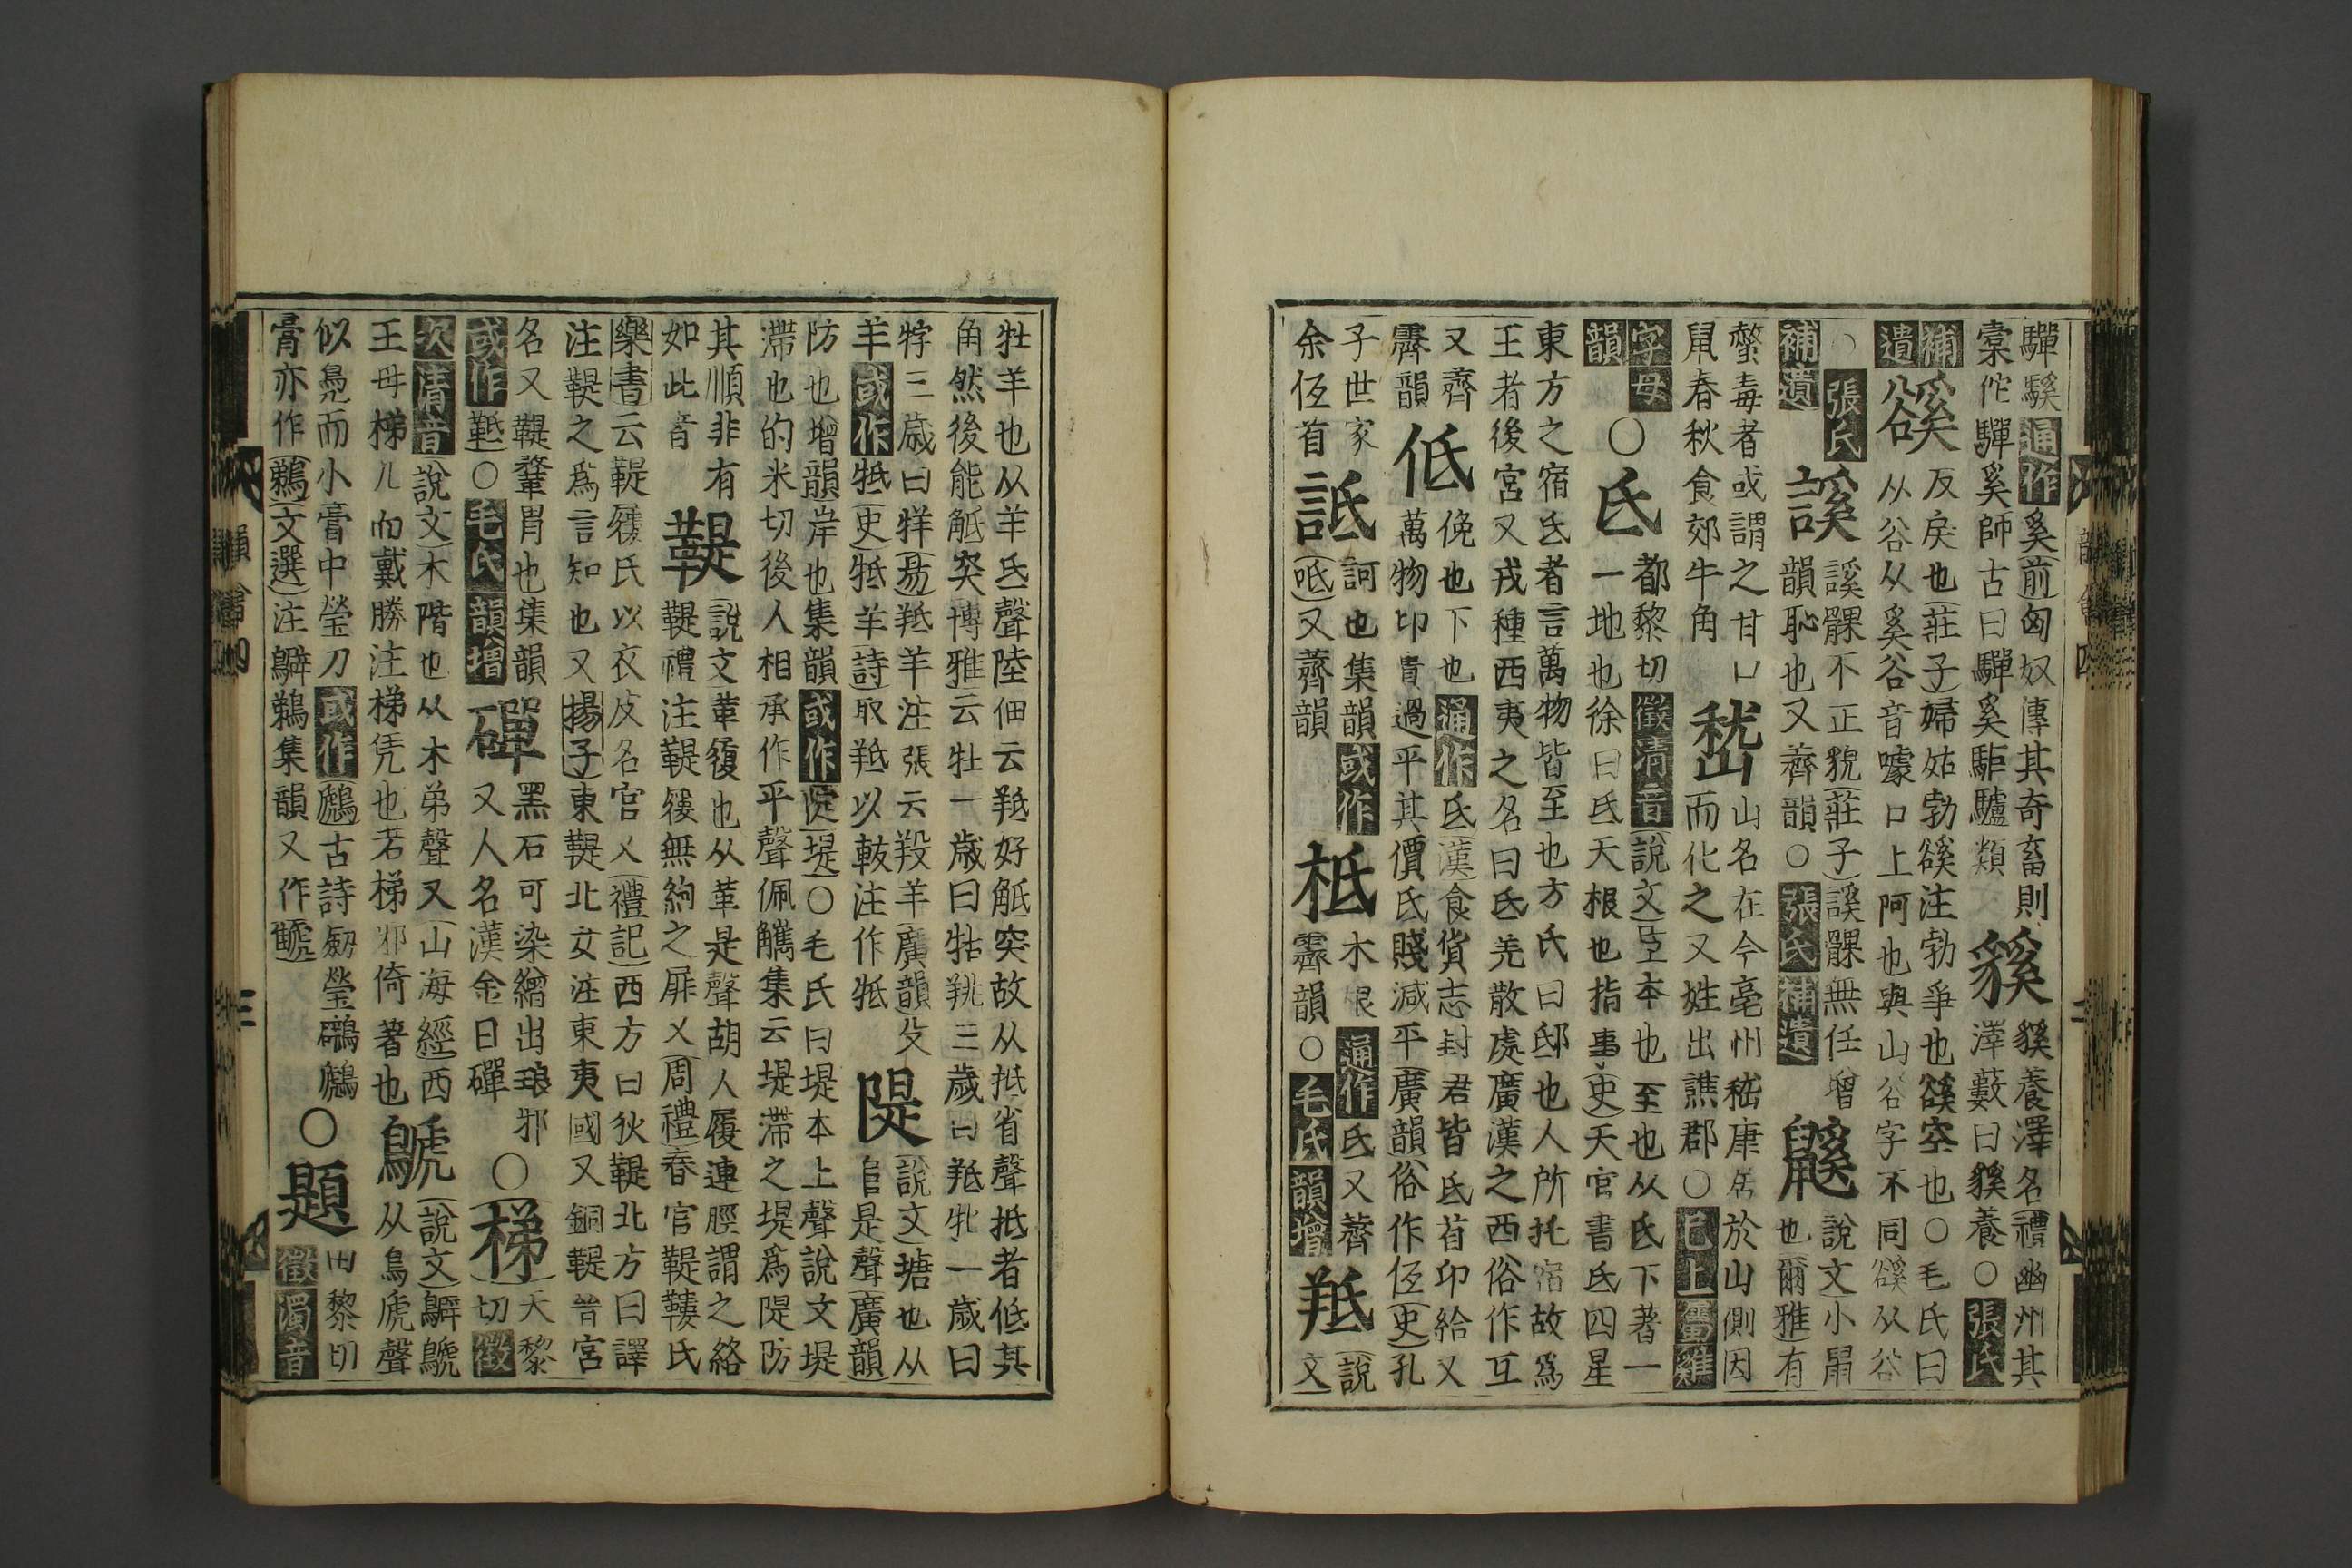 驒騱通作奚前匈奴傳其奇畜則
豀
槖佗驒奚師古曰驒奚駏驉類
貕
貕養澤名禮幽州其
澤藪曰貕養○張氏
補遺
谿
反戾也莊子婦姑勃谿注勃爭也谿空也○毛氏曰
从谷从奚谷音噱口上阿也與山谷字不同谿从谷
○張氏補遺
謑
謑髁不正貌莊子謑髁無任增
韻恥也又薺韻○張氏補遺
鼷
說文小鼠也爾雅有
螫毒者或謂之甘口
鼠春秋食郊牛角
嵇
山名在今亳州嵇康居於山側因
而化之又姓出譙郡○已上屬雞
字母韻
○氐
都黎切徵清音說文氐本也至也从氏下著一
一地也徐曰氐天根也指事史天官書氐四星
東方之宿氐者言萬物皆至也方氏曰邸也人所托宿故爲
王者後宮又戎種西夷之名曰氐羌散處廣漢之西俗作互
又齊霽韻
低
俛也下也通作氐漢食貨志封君皆氐首卬給又
萬物卬貴過平其價氐賤減平廣韻俗作仾史孔
子世家余仾首
詆
訶也集韻或作呧又薺韻
柢
木根通作氐又薺霽韻○毛氏韻增
羝
說文
牡羊也从羊氐聲陸佃云羝好觝突故从抵省聲抵者低其
角然後能觝突博雅云牡一歲曰牯羜三歲曰羝牝一歲曰
牸三歲曰牂易羝羊注張云羖羊廣韻攵
羊或作牴史牴羊詩取羝以軷注作牴
隄
說文塘也从
𨸏是聲廣韻
防也增韻岸也集韻或作阺堤○毛氏曰堤本上聲說文堤
滯也的米切後人相承作平聲佩觿集云堤滯之堤爲隄防
其順非有如此音
鞮
說文革履也从革是聲胡人履連脛謂之絡
鞮禮注鞮屨無絇之屝又周禮春官鞮鞻氏
樂書云鞮屨氏以衣皮名官又禮記西方曰狄鞮北方曰譯
注鞮之爲言知也又揚子東鞮北女注東夷國又銅鞮晉宮
名又鞮鞪胄也集韻
或作䩚○毛氏韻增
磾
黑石可染繒出琅邪
又人名漢金日磾
○梯
天黎切徵
次清音說文木階也从木弟聲又山海經西
王母梯几而戴勝注梯凭也若梯邪倚著也
鷈
說文鷿鷈
从鳥虒聲
似鳧而小膏中瑩刀或作鷉古詩劒瑩鸊鷉
膏亦作鵜文選注鷿鵜集韻又作鷈
○題
田黎切
徵濁音
韻會四